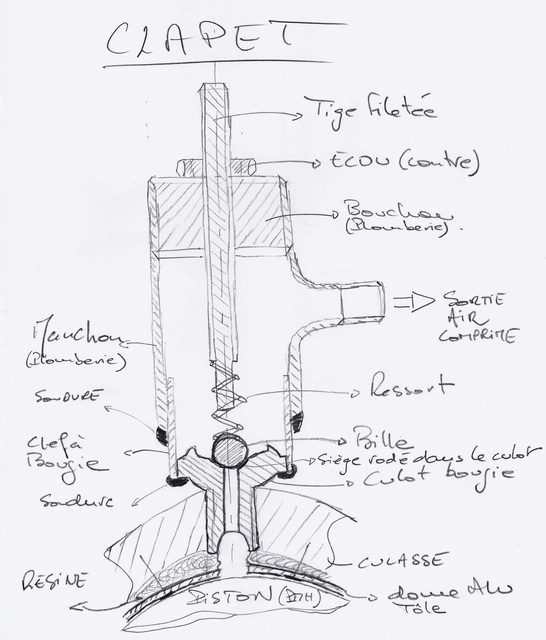 CLAPET
Tige filetée
ECOU (contre)
Bouchon
(Plomberie).
SORTIE
AIR
COMPRIME
Manchon
(Plomberie)
SOUDURE
Ressort
Clef à
Bougie
Bille
Siège rodé dans le culot
Culot bougie
Soudure
CULASSE
RESINE
PISTON (PMH)
dome Alu
Tôle